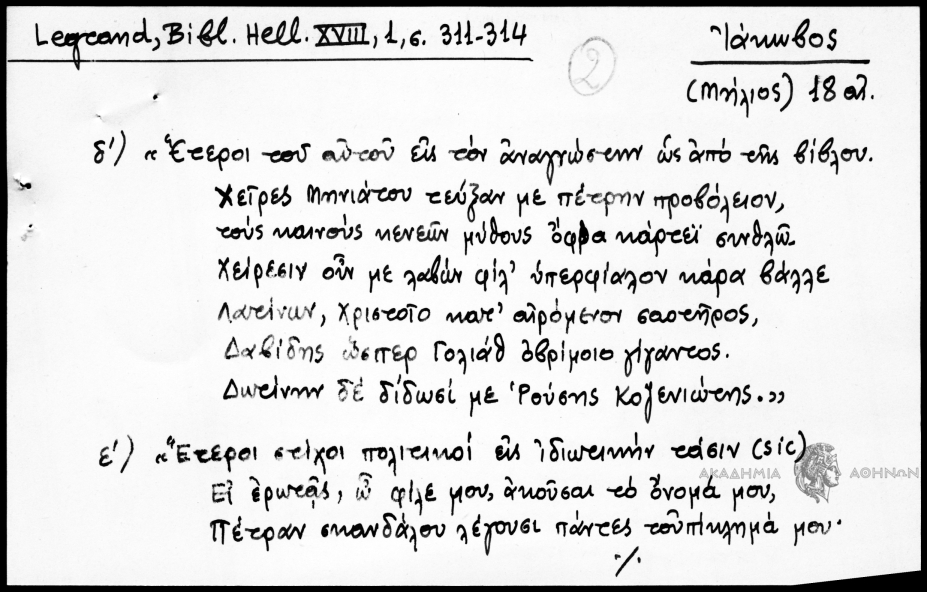 Legrand, Bibl. Hell. XVIII, 1, σ. 311-314
Ἰάκωβος
2
(Μήλιος) 18 αἰ.
δ΄) « Ἕτεροι τοῦ αὐτοῦ εἰς τὸν ἀναγνώστην ὡς ἀπὸ τῆς βίβλου.
Χεῖρες Μηνιάτου τεῦξαν με πέτρην προβόλειον,
τοὺς καινοὺς κενεῶν μύθους ὄφρα κάρτεϊ συνθλῶ.
Χείρεσιν οὖν με λαβὼν φίλ' ὑπερφίαλον κάρα βάλλε
Λατίνων, Χριστοῖο κατ' αἰρόμενον σαοτῆρος,
Δαβίδης ὥσπερ Γολιὰθ ὀβρίμοιο γίγαντος.
Δωτίνην δὲ δίδωσί με Ῥούσης Κοζενιώτης.»
ε΄) «Ἕτεροι στίχοι πολιτικοὶ εἰς ἰδιωτικὴν τάσιν (sic)
ΑΚΑΔΗΜΙΑ ΑΘΗΝΩΝ
Εἰ ἐρωτᾷς, ὦ φίλε μου, ἀκοῦσαι τὸ ὄνομά μου,
Πέτραν σκανδάλου λέγουσι πάντες τοὐπίκλημά μου·
·/.